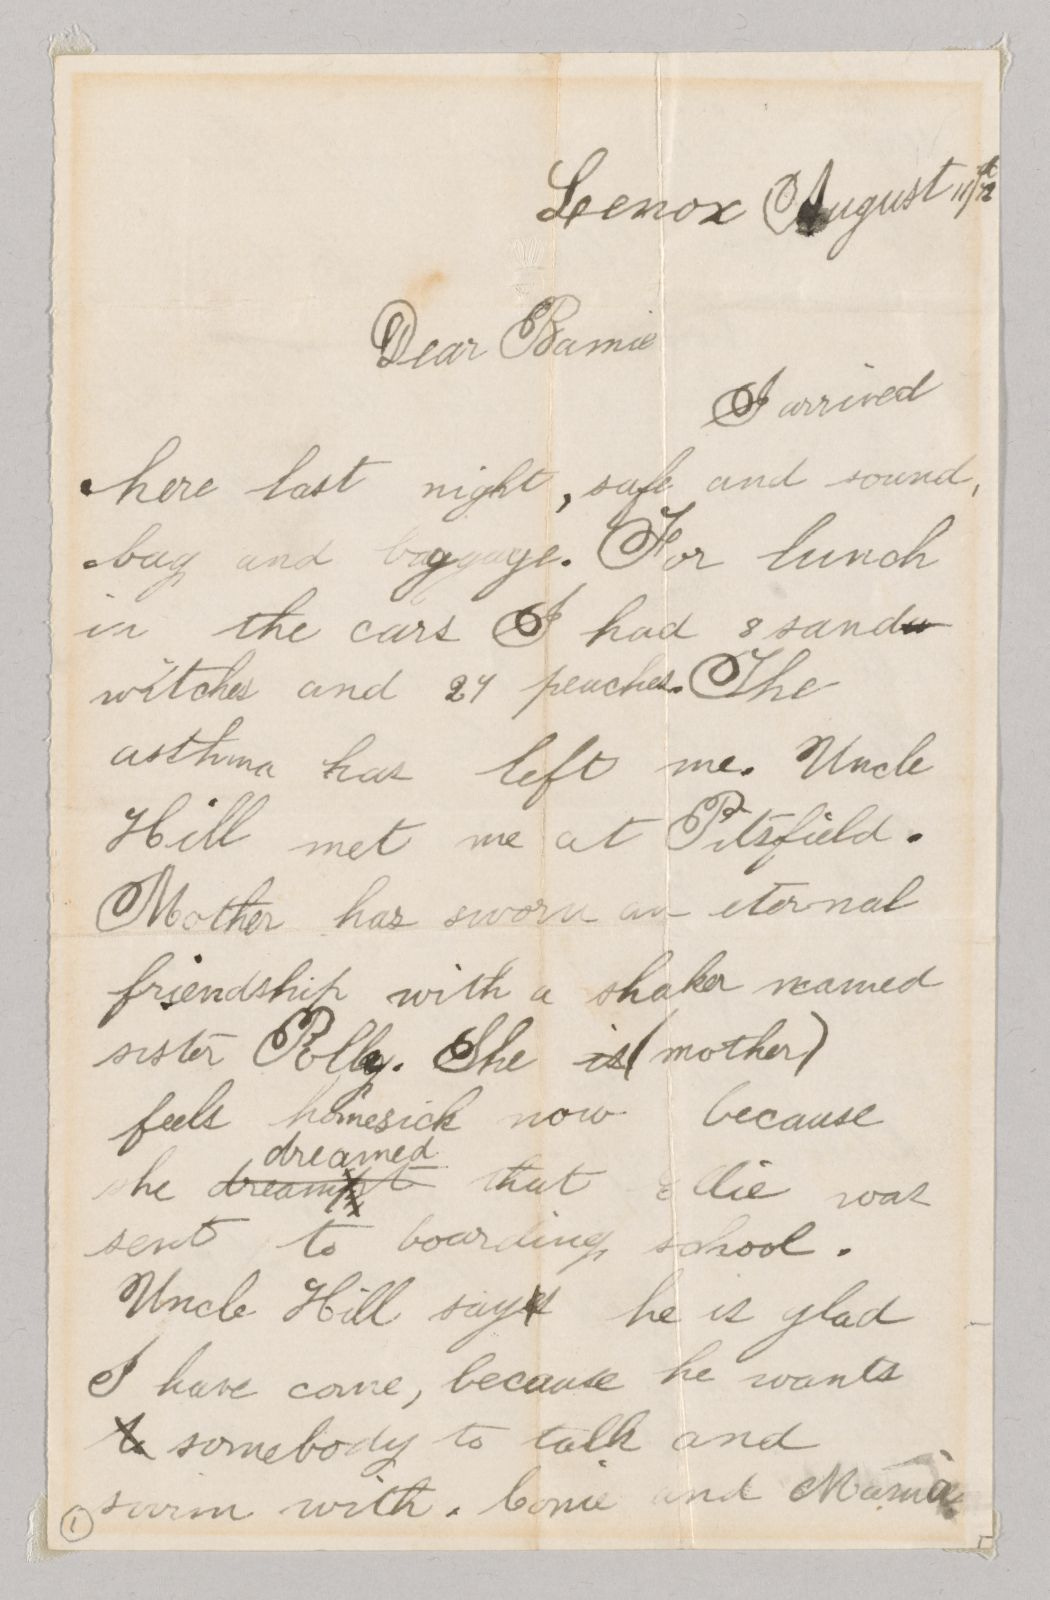 Lenox August 11th
Dear Bamie
I arrived
here last night, safe and sound,
bag and baggage. For lunch
in the cars I had 8 sand
witches and 24 peaches. The
asthma has left me. Uncle
Hill met me at Pitsfield.
Mother has sworn an eternal
friendship with a shaker named
sister Polly. She is (mother)
feels homesick now because
dreamed
she dreampt that Ellie was
sent to boarding school.
Uncle Hill says he is glad
I have come, because he wants
somebody to talk and
swim with. Conie and Mamie
1